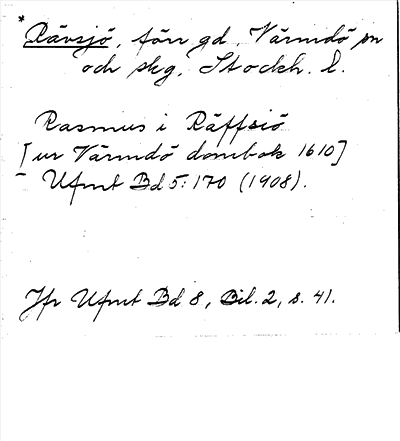 * Rävsjö, förr gd, Värmdö sn
och skg, Stockh. l.
Rasmus i Räffsiö
[ur Värmdö dombok 1610]
Ufmt Bd 5:170 (1908).
Jfr Ufmt Bd 8, Bil. 2, s. 41.